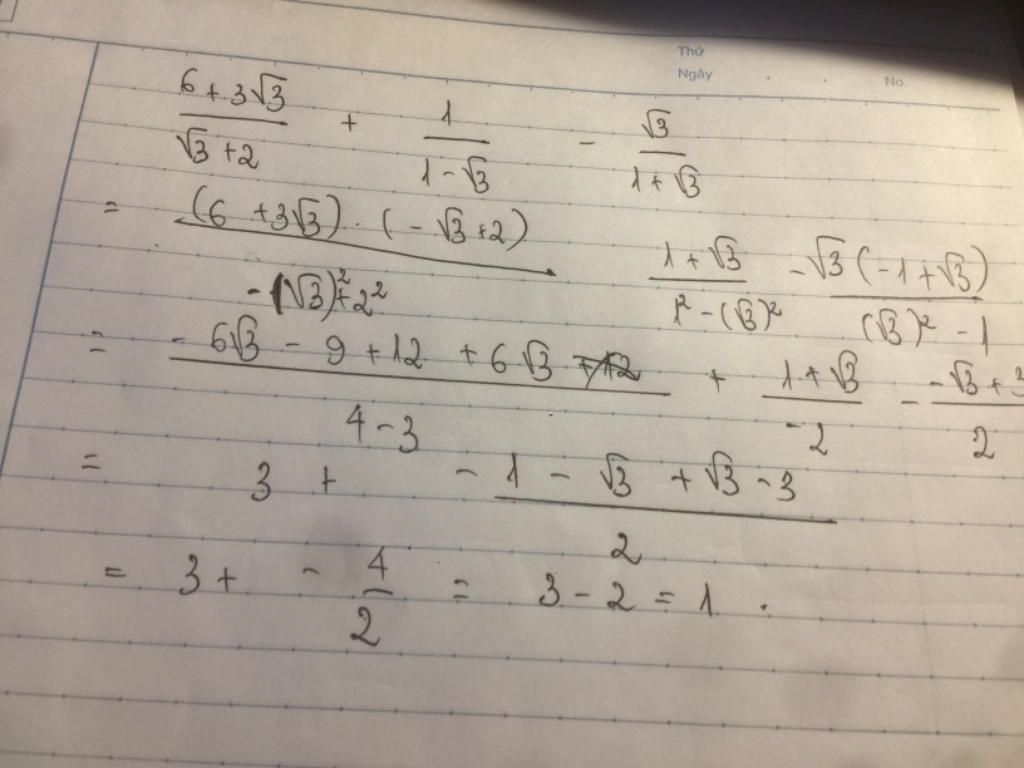 Thứ
Ngày No.
(6 + 3√3)/(√3 + 2) + 1/(1 - √3) - √3/(1 + √3)
= (6 + 3√3) . (- √3 + 2)/(-(√3)² + 2²) (1 + √3)/(1² - (√3)²) - √3(-1 + √3)/((√3)² - 1)
= (- 6√3 - 9 + 12 + 6√3)/(4 - 3) + (1 + √3)/(-2) - (-√3 + 3)/2
= 3 + (- 1 - √3 + √3 - 3)/2
= 3 + - 4/2 = 3 - 2 = 1 .